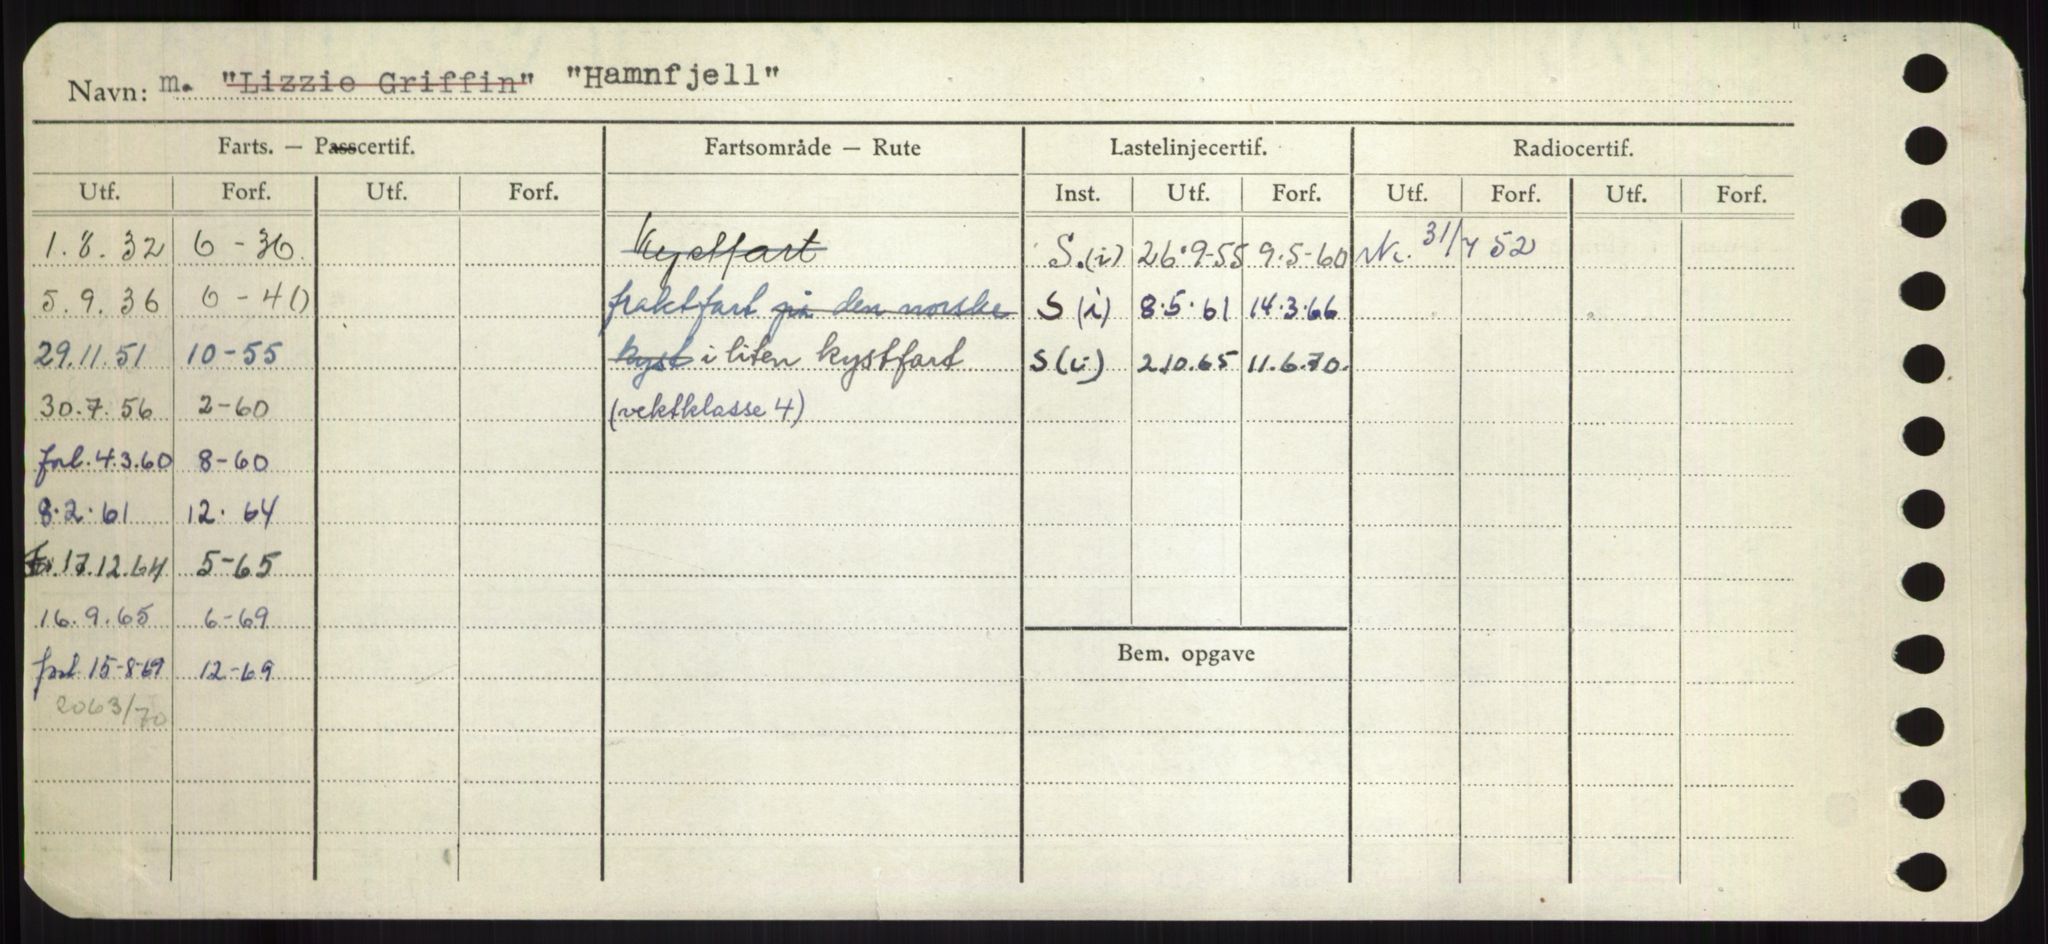 Navn: m. "Lizzie Griffin" "Hamnfjell"
Farts. — Passcertif. Fartsområde — Rute Lastelinjecertif. Radiocertif.
Utf. Forf. Utf. Forf. Inst. Utf. Forf. Utf. Forf. Utf. Forf.
1.8.32 6-36 Kystfart S.(i) 26.9-55 9.5-60 Nk. 31/7 52
5.9.36 6-40 fraktfart på den norske S (i) 8.5.61 14.3.66
29.11.51 10-55 kyst i liten kystfart S (i) 2.10.65 11.6.70.
30.7.56 2-60 (vektklasse 4)
forl. 4.3.60 8-60
8.2.61 12.64
17.12.64 5-65
16.9.65 6-69
forl. 15-8-69 12-69
Bem. opgave
2063/70